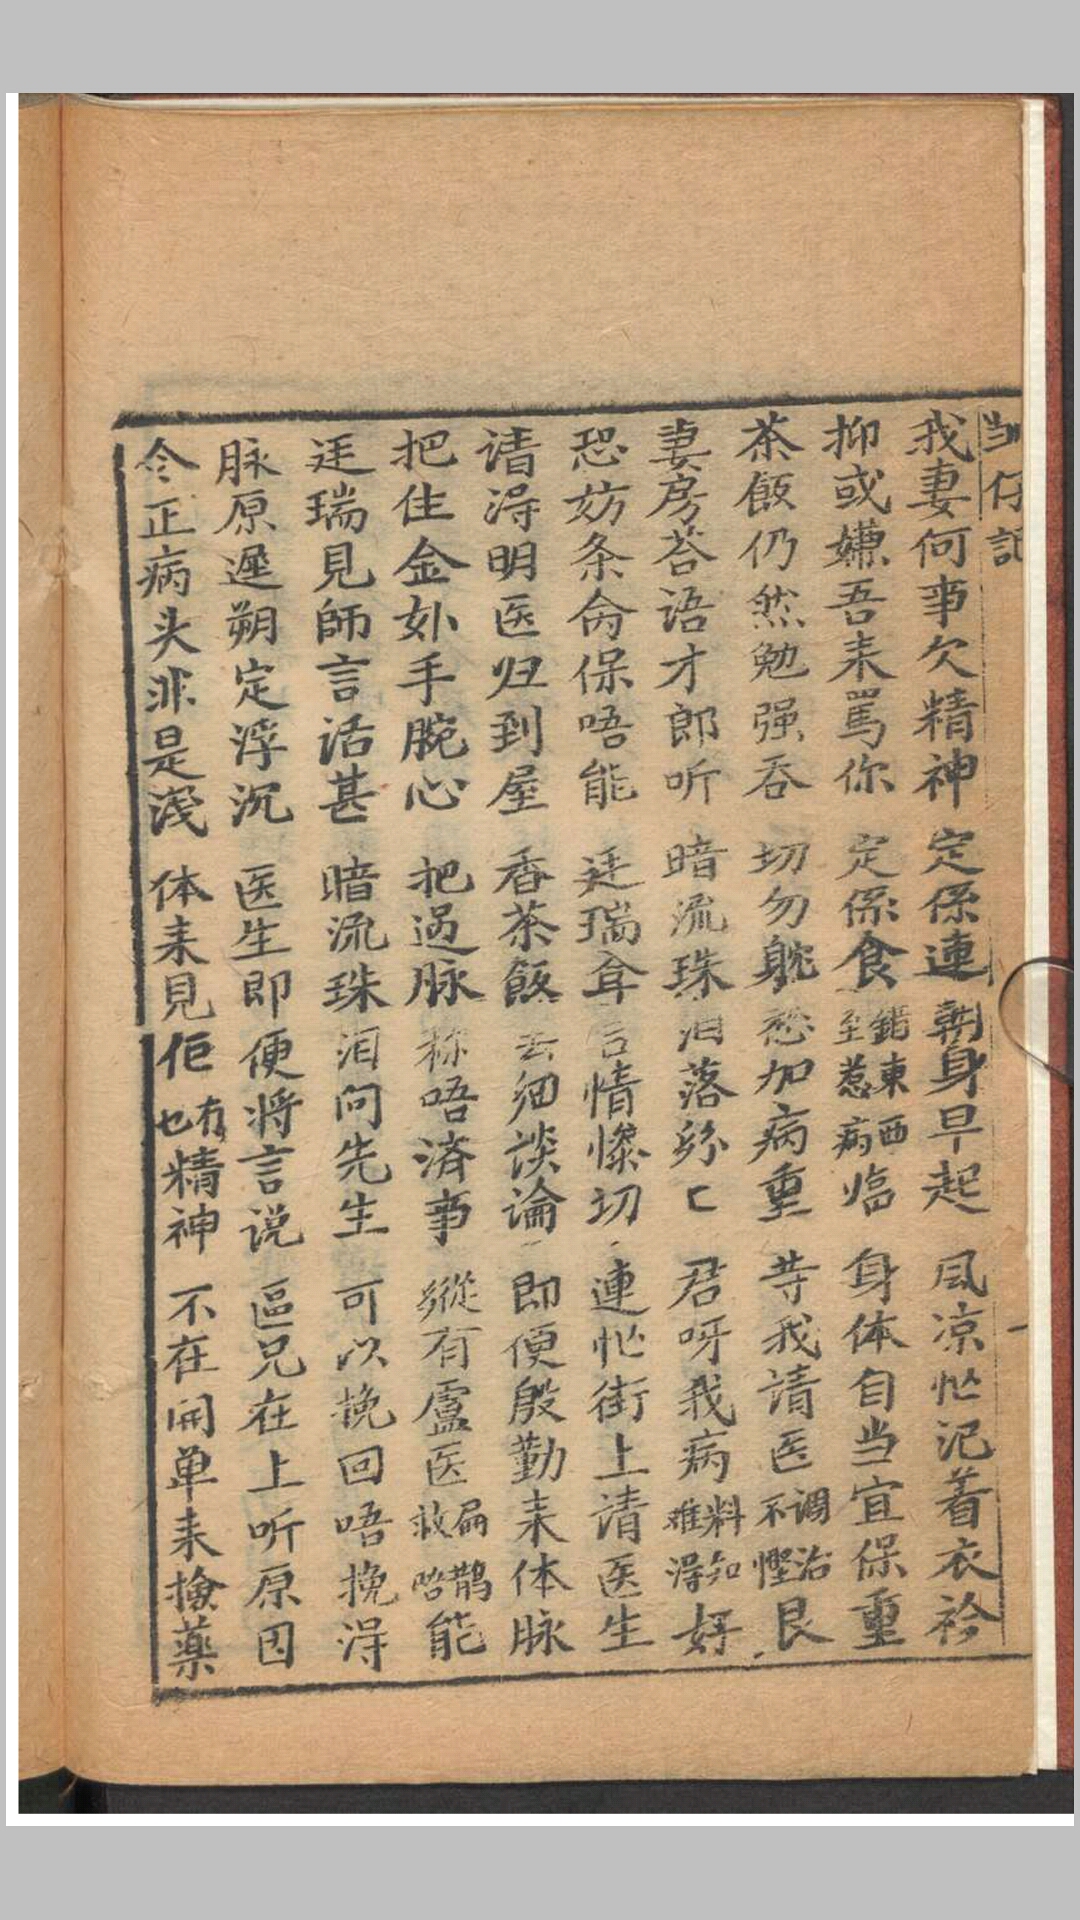 当仔記
我妻何事欠精神 定係連朝身早起 風凉忙记着衣衿
抑或嫌吾来罵你 定係食錯東西至惹病临 身体自当宜保重
茶飯仍然勉强吞 切勿躭愁加病重 等我请医调治不慳艮
妻房荅语才郎听 暗流珠泪落纷匕 君呀我病料知难得好
恐妨条命保唔能 廷瑞耳言情惨切 連忙街上请医生
请得明医归到屋 香茶飯去细谈論 即便殷勤来体脉
把住金妙手腕心 把过脉称唔済事 縱有盧医扁鹊救唔能
廷瑞見師言话甚 暗流珠泪问先生 可以挽回唔挽得
脉原遲朔定浮沉 医生即便将言说 區兄在上听原因
令正病头非是浅 体来見佢有也精神 不在開单来撿藥